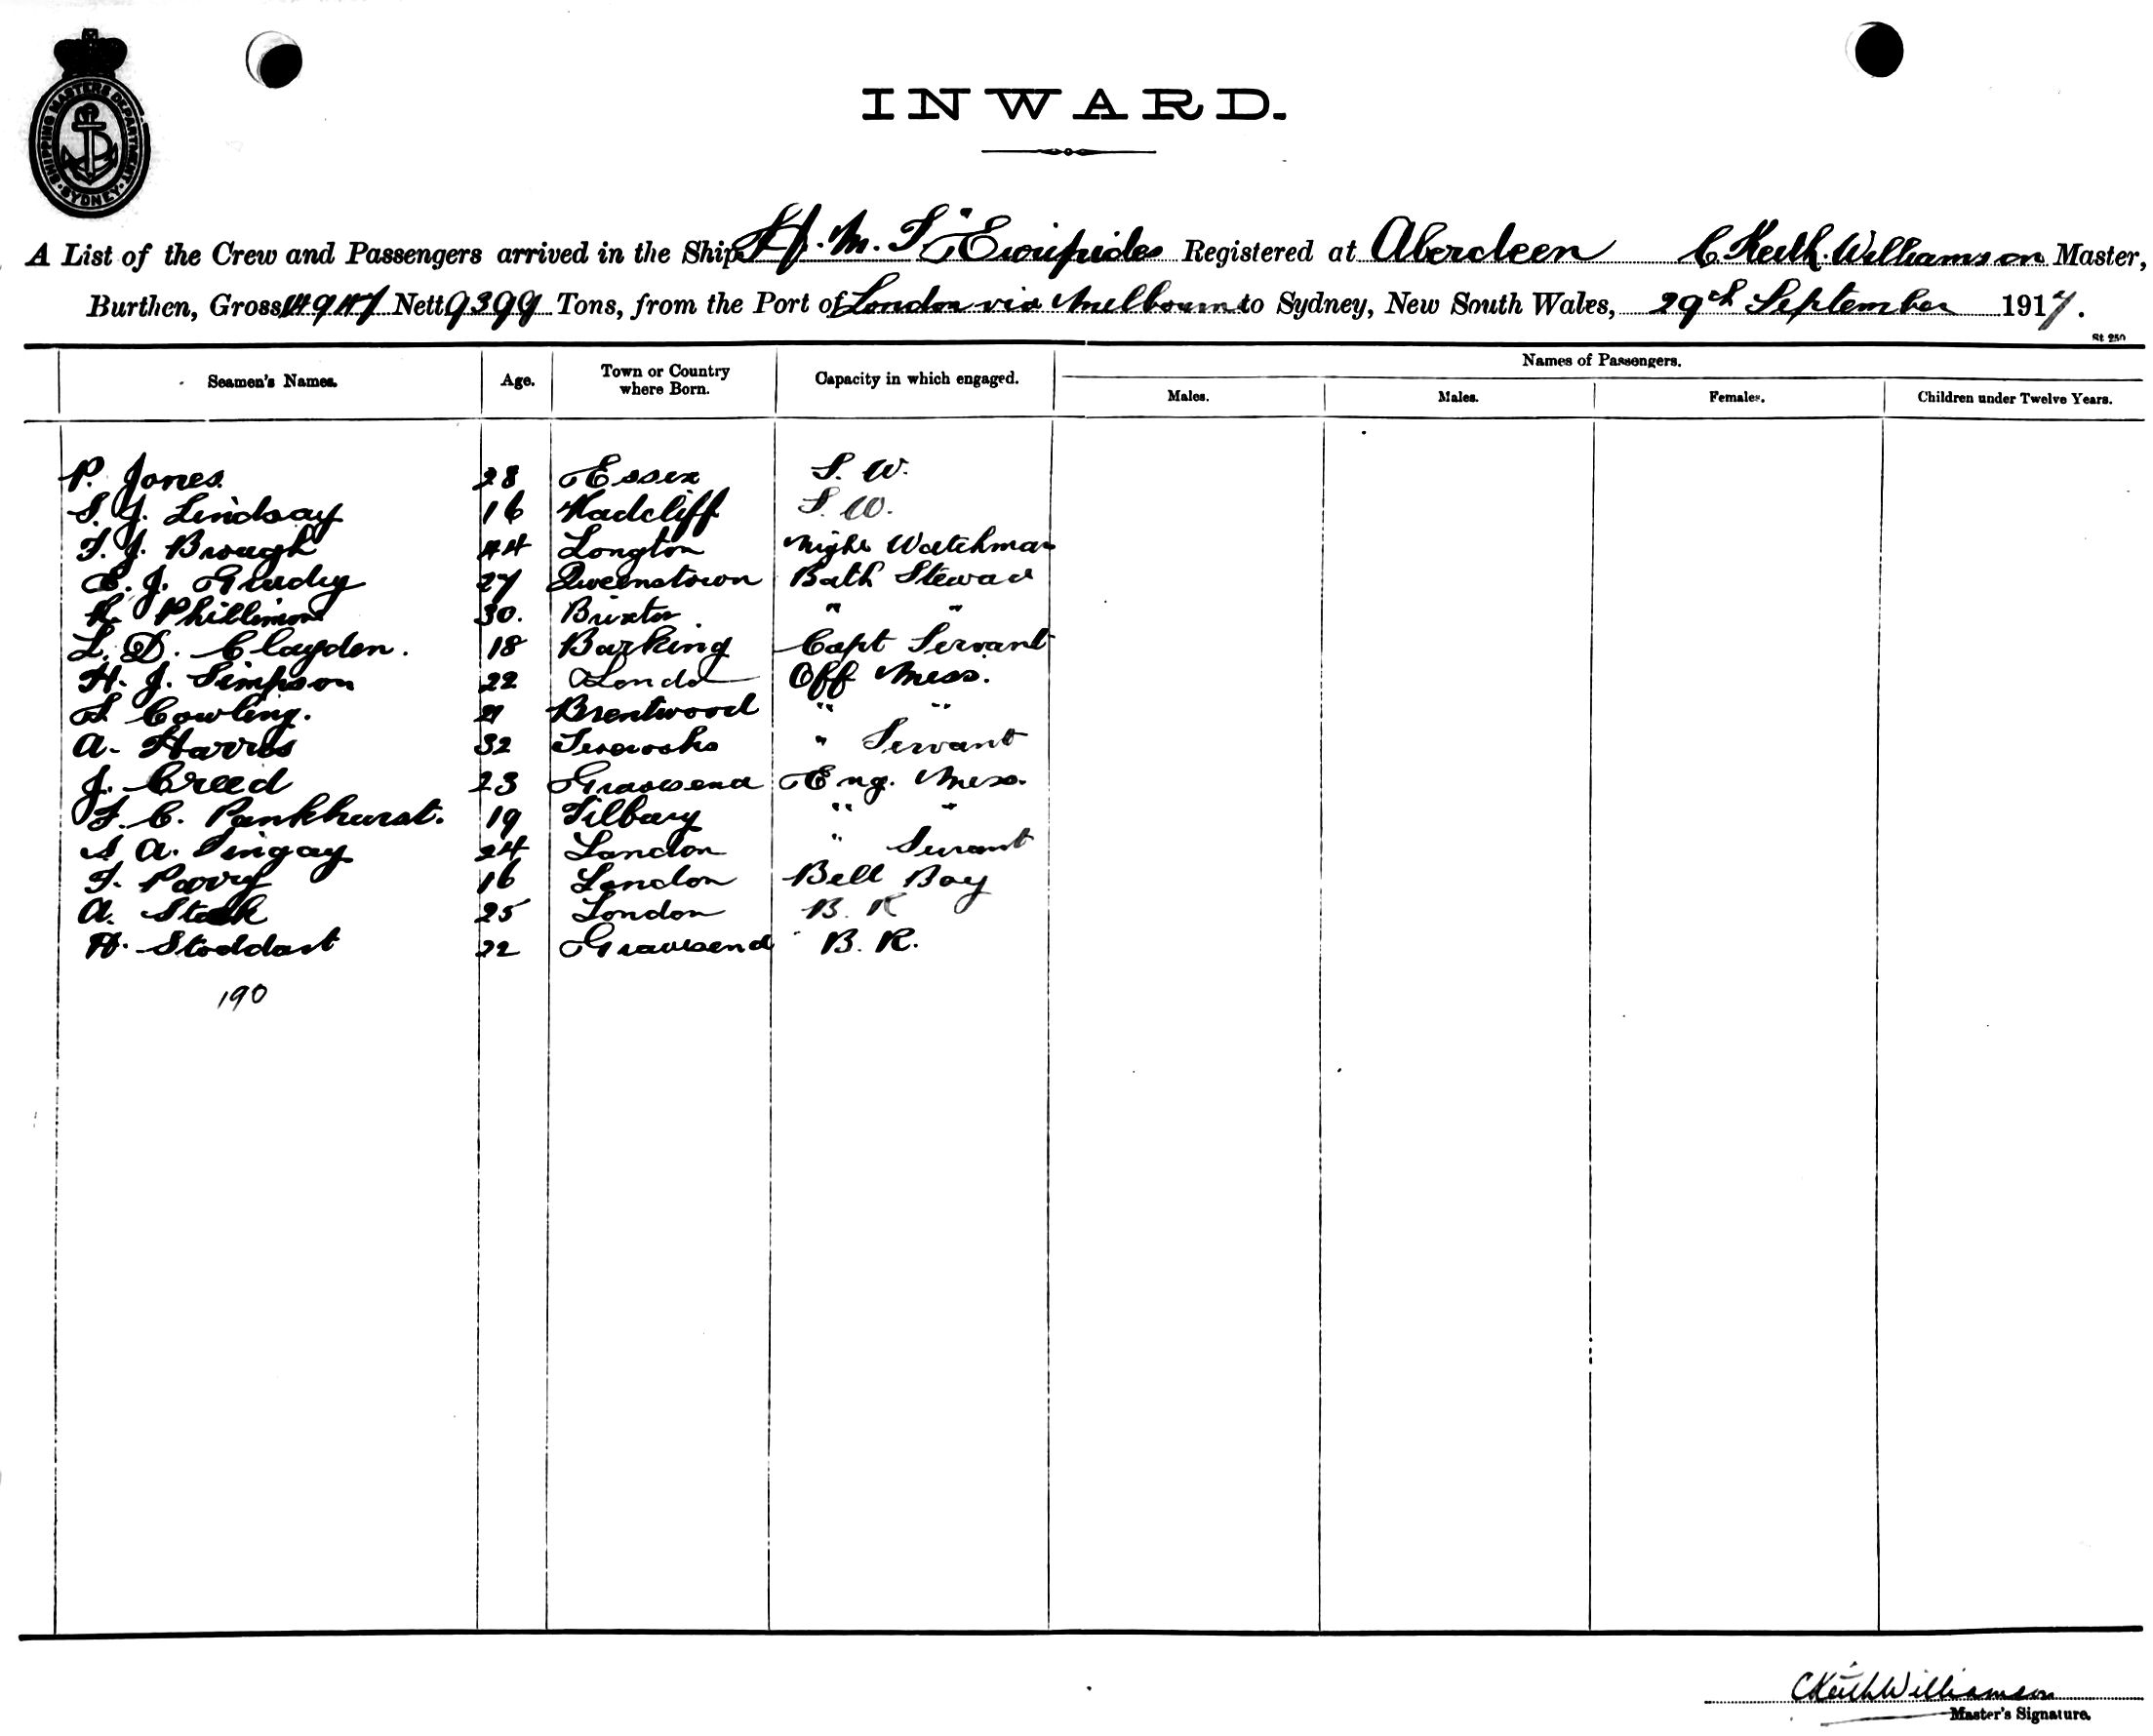 SHIPPING MASTERS DEPARTMENT. SYDNEY.
INWARD.
A List of the Crew and Passengers arrived in the Ship H. M. T. "Euripides Registered at Aberdeen C Keith Williamson Master,
Burthen, Gross 14947 Nett 9399 Tons, from the Port of London via Melbourn to Sydney, New South Wales, 29th September 1917.
St 250
Seamen's Names. Age. Town or Country where Born. Capacity in which engaged. Names of Passengers.
Males. Males. Females. Children under Twelve Years.
P. Jones. 28 Essex S. W.
S. J. Lindsay 16 Radcliff S. W.
T. J. Brough 44 Longton Night Watchman
E. J. Grady 27 Queenstown Bath Steward
Phillimore 30. Brixton " "
L. D. Clayden. 18 Barking Capt Servant
H. J. Simpson 22 London Off Mess.
S Cowling. 21 Brentwood " "
A. Harris 32 " Servant
J. Creed 23 Gravesend Eng. Mess.
F. C. Pankhurst. 19 Tilbury " "
S A. Tingay 24 London " Servant
T. Parry 16 London Bell Boy
A. 25 London B. R
H. Stoddart 22 Gravesend B. R.
190
C Keith Williamson
Master's Signature.